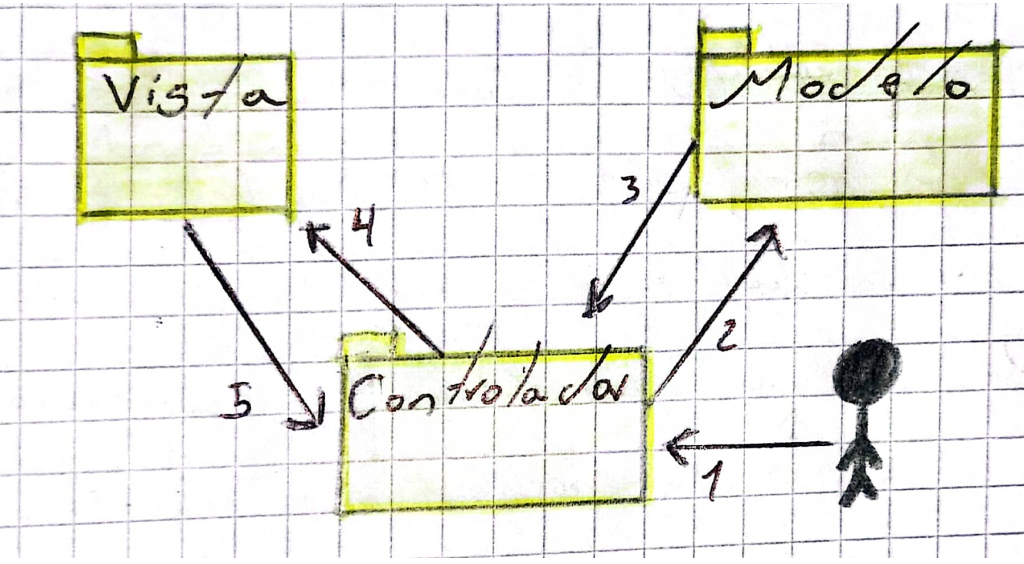 Vista
Modelo
3
4
2
Controlador
5
1